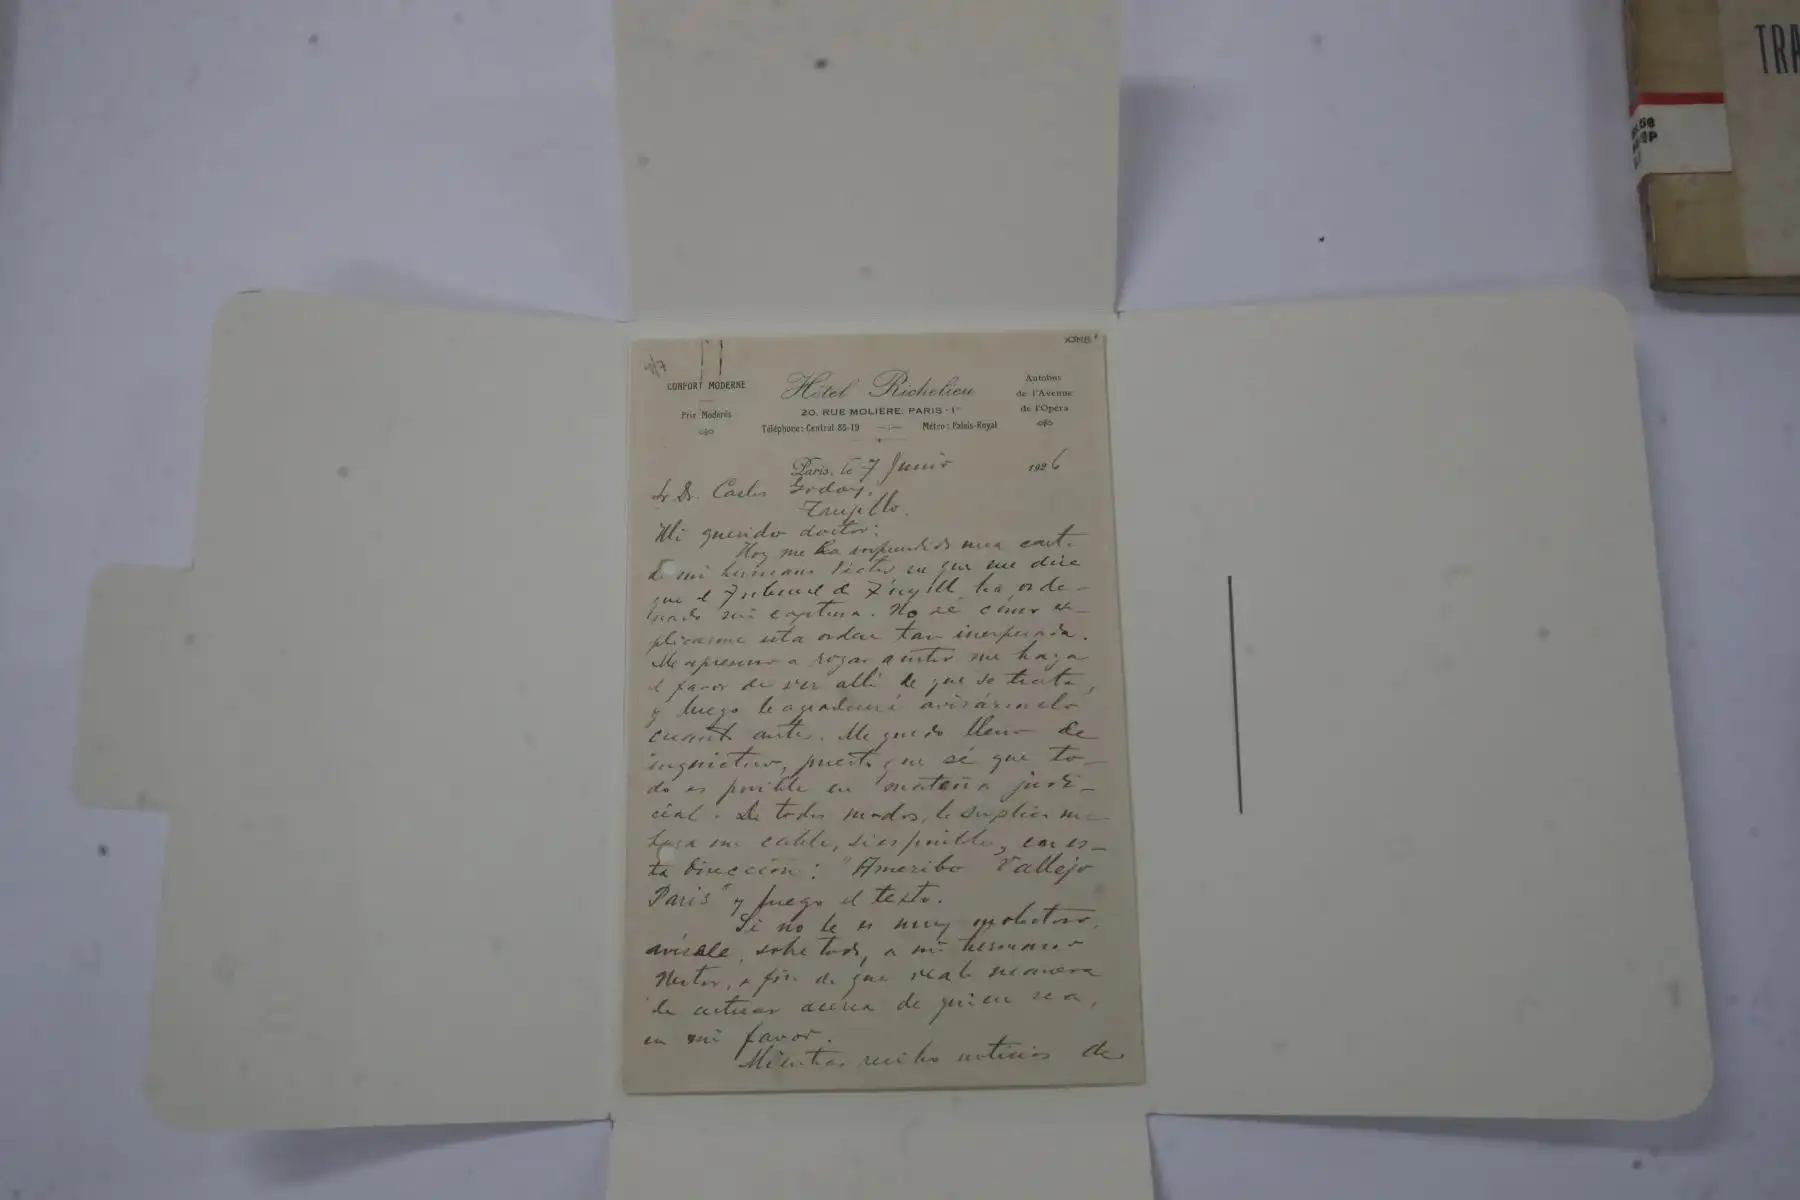 TRA
1/7
CONFORT MODERNE
Prix Modérés
Hôtel Richelieu
20, RUE MOLIÈRE, PARIS-1er
Téléphone: Central 85-19
Métro: Palais-Royal
Autobus
de l'Avenue
de l'Opéra
Paris, le 7 Junio 1926
Sr Dr. Carlos Godoy,
Trujillo.
Mi querido doctor:
Hoy me ha sorprendido una carta
de mi hermano Víctor en que me dice
que el Tribunal de Trujillo ha orde-
nado mi captura. No sé cómo ex-
plicarme esta orden tan inesperada.
Me apresuro a rogar a usted me haga
el favor de ver allí de que se trata,
y luego le agradeceré avisármelo
cuanto antes. Me quedo lleno de
inquietud, puesto que sé que to-
do es posible en materia judi-
cial. De todos modos, le suplico me
haga un cable, si es posible, en es-
ta dirección: "Ameribo Vallejo
Paris" y luego el texto.
Si no le es muy molestoso,
avísele, sobre todo, a mi hermano
Néstor, a fin de que vea la manera
de actuar acerca de quien sea,
en mi favor.
Mientras recibo noticias de